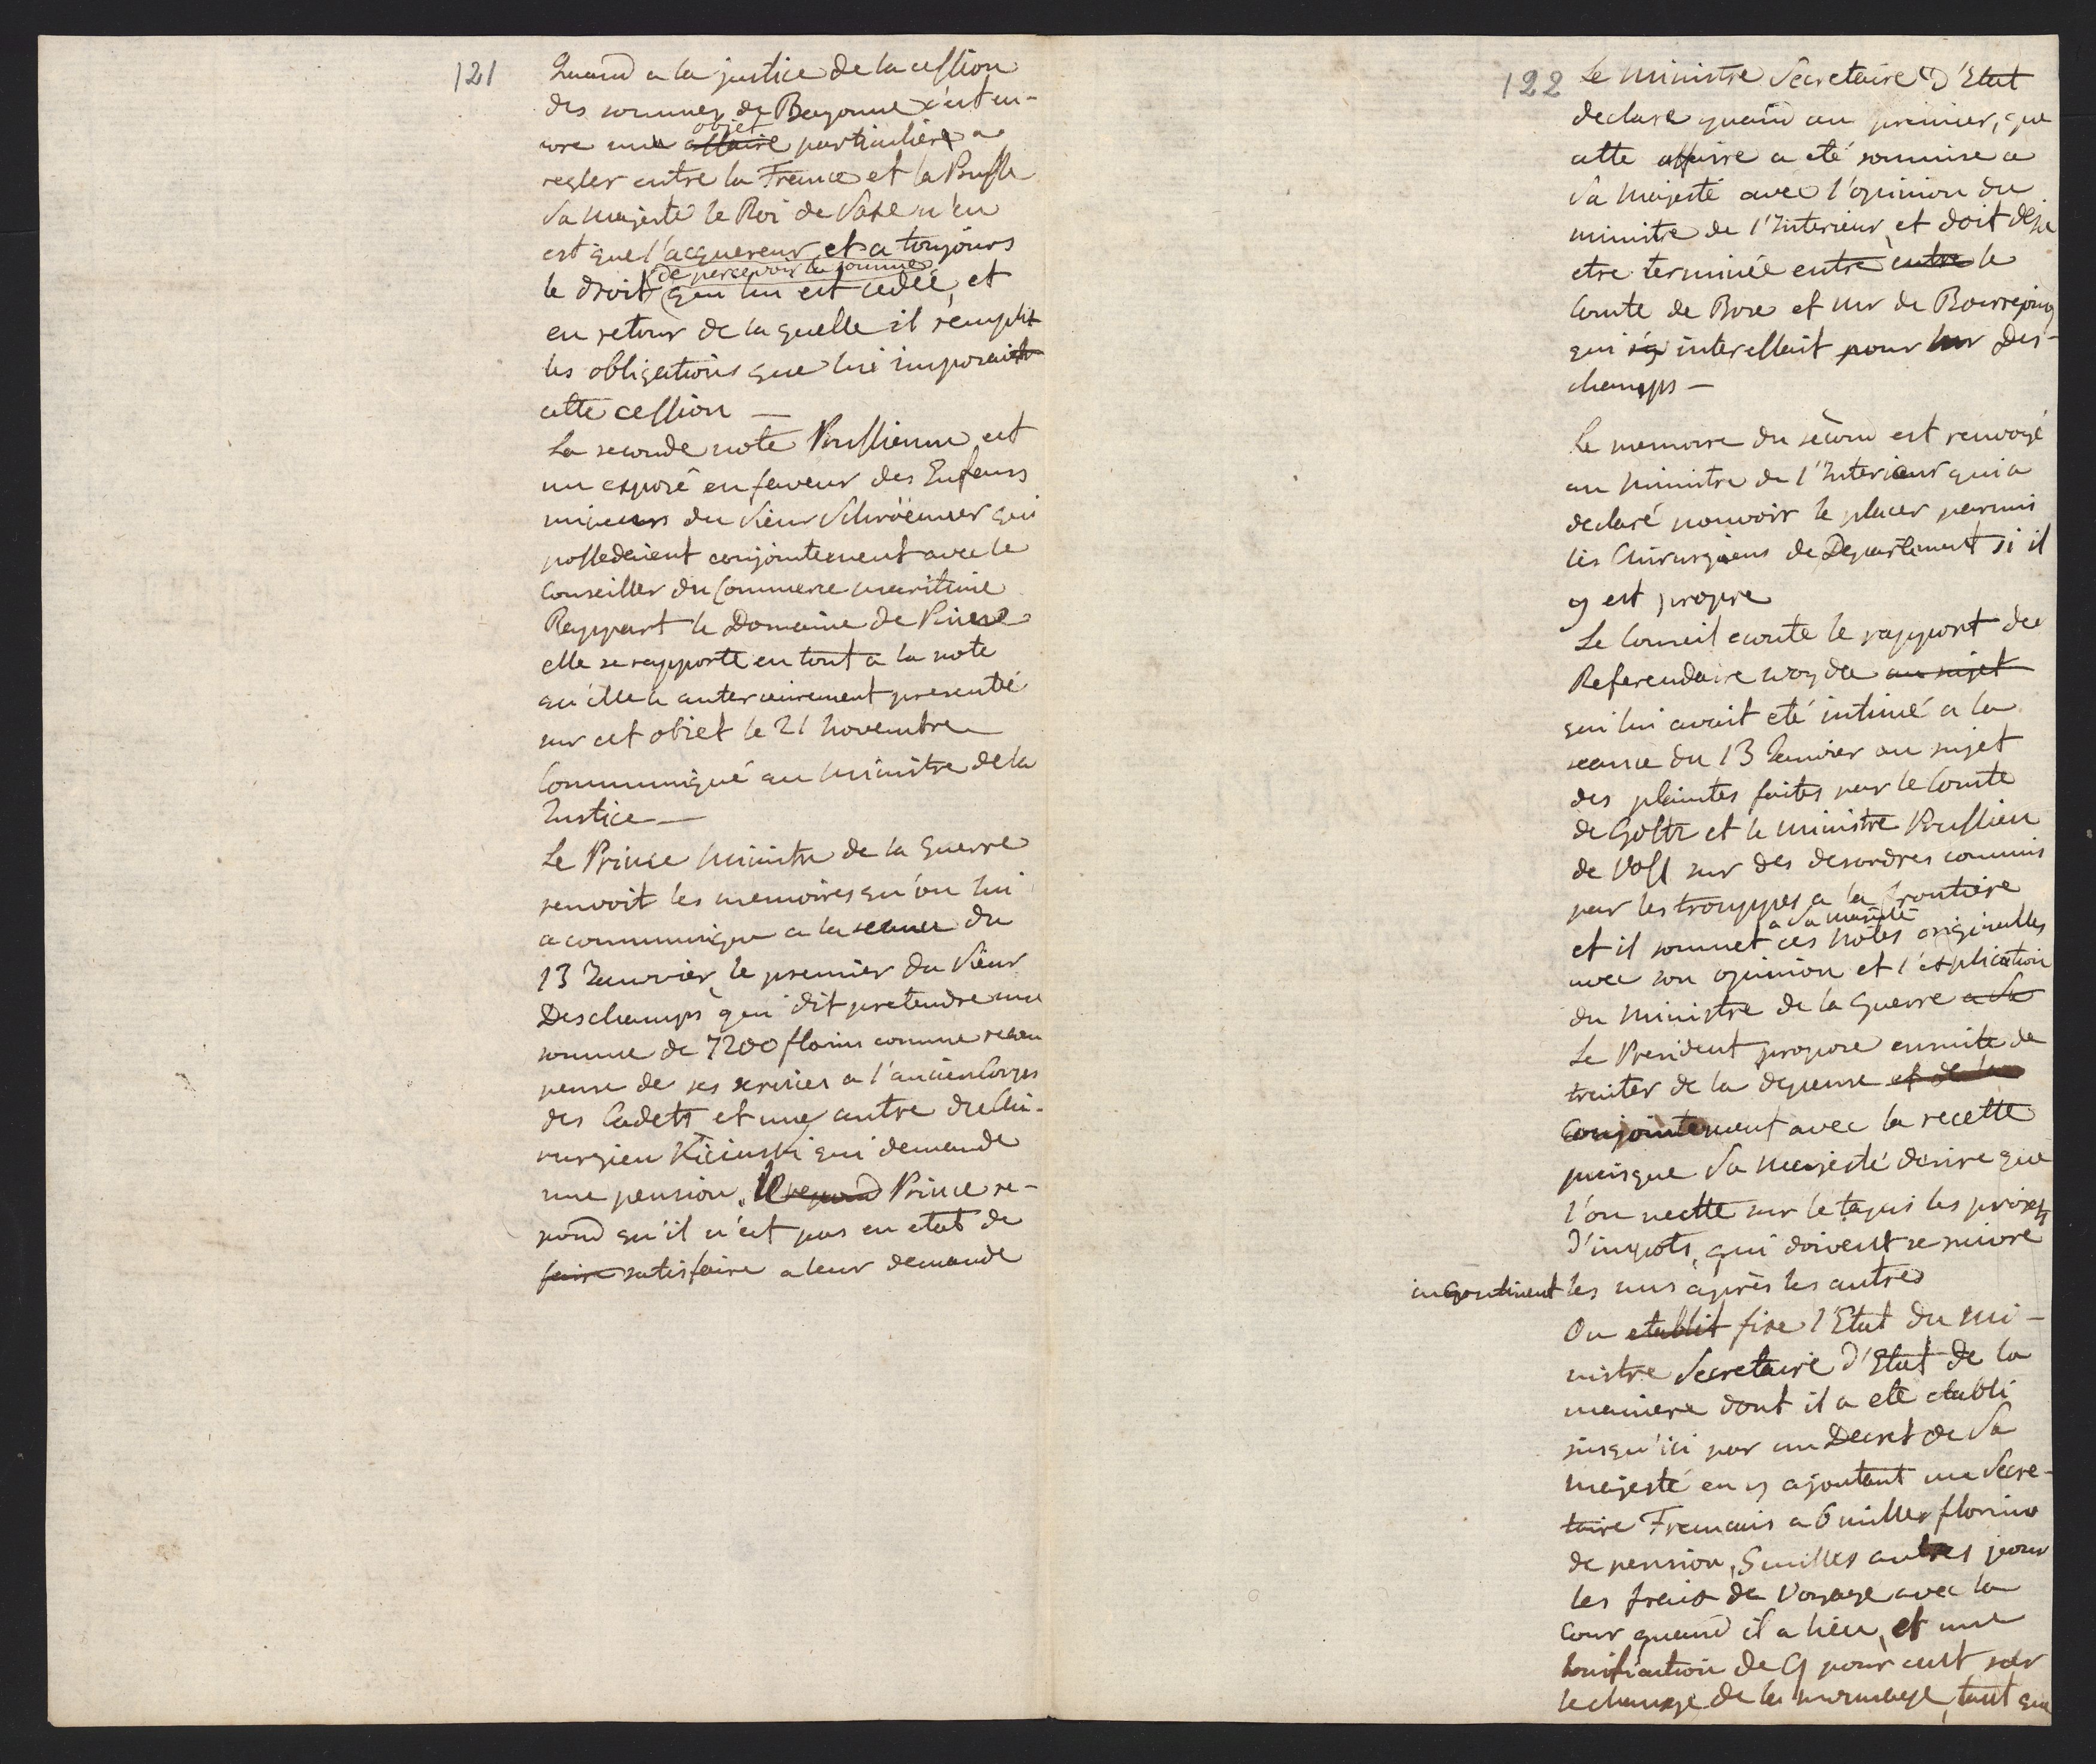 121
Quand a la justice de la cession
des sommes de Bayonne c'est en-
objet
core une affaire particuliere a
regler entre la France et la Prusse
Sa Majesté le Roi de Saxe n'en
est que l'acquereur et a toujours
de percevoir la somme
le droit qui lui est cedée, et
en retour de laquelle il remplit
les obligations que lui imposait
cette cession —
La seconde note Prussienne est
un exposé en faveur des Enfans
mineurs du Sieur Schröemer qui
possedaient conjointement avec le
Conseiller du Commerce maritime
Rappart le Domaine de
elle se rapporte en tout a la note
qu'elle a anterieurement presenté
sur cet objet le 21 Novembre
Communiqué au Ministre de la
Justice —
Le Prince Ministre de la Guerre
renvoit les memoires qu'on lui
a communiqué a la seance du
13 Janvier, le premier du Sieur
Deschamps qui dit pretendre une
somme de 7200 florins comme recom
pense de ses services a l'ancien Corps
des Cadets et une autre du Chi-
rurgien Kicinski qui demande
une pension, Le repond Prince re-
pond qu'il n'est pas en etat de
faire satisfaire a leur demande
122
Le Ministre Secretaire D'Etat
declare quand au premier, que
cette affaire a eté soumise a
Sa Majesté avec l'opinion du
ministre de l'Interieur, et doit deja
etre terminée entre entre le
Comte de Bose et mr de Bourgoing
qui s'y interessait pour mr Des-
champs —
Le memoire du second est renvoyé
au Ministre de l'Interieur qui a
declaré pouvoir le placer parmis
les Chirurgiens de Departement si il
y est propre
Le Conseil ecoute le rapport du
Referendaire Woyda au sujet
qui lui avait eté intimé a la
seance du 13 Janvier au sujet
des plaintes faites par le Comte
de Goltz et le ministre Prussien
de Voss sur des desordres commis
par les trouppes a la frontière
a Sa Majesté
et il soumet ces notes originelles
avec son opinion et l'explication
du Ministre de la Guerre a Sa
Le President propose ensuite de
traiter de la depense et de la
conjointement avec la recette
puisque Sa Majesté desire que
l'on mette sur le tapis les projets
d'impots, qui doivent se suivre
incontinent les uns après les autres
On etablit fixe l'Etat du Mi-
nistre Secretaire d'Etat de la
maniere dont il a eté etabli
jusqu'ici par un Decret de Sa
Majesté en y ajoutant un Secre-
taire Francais a 6 milles florins
de pension, 5 milles autres pour
les frais de Voyage avec la
Cour quand il a lieu, et une
bonification de 9 pour cent sur
le change de la monnaye, tant que